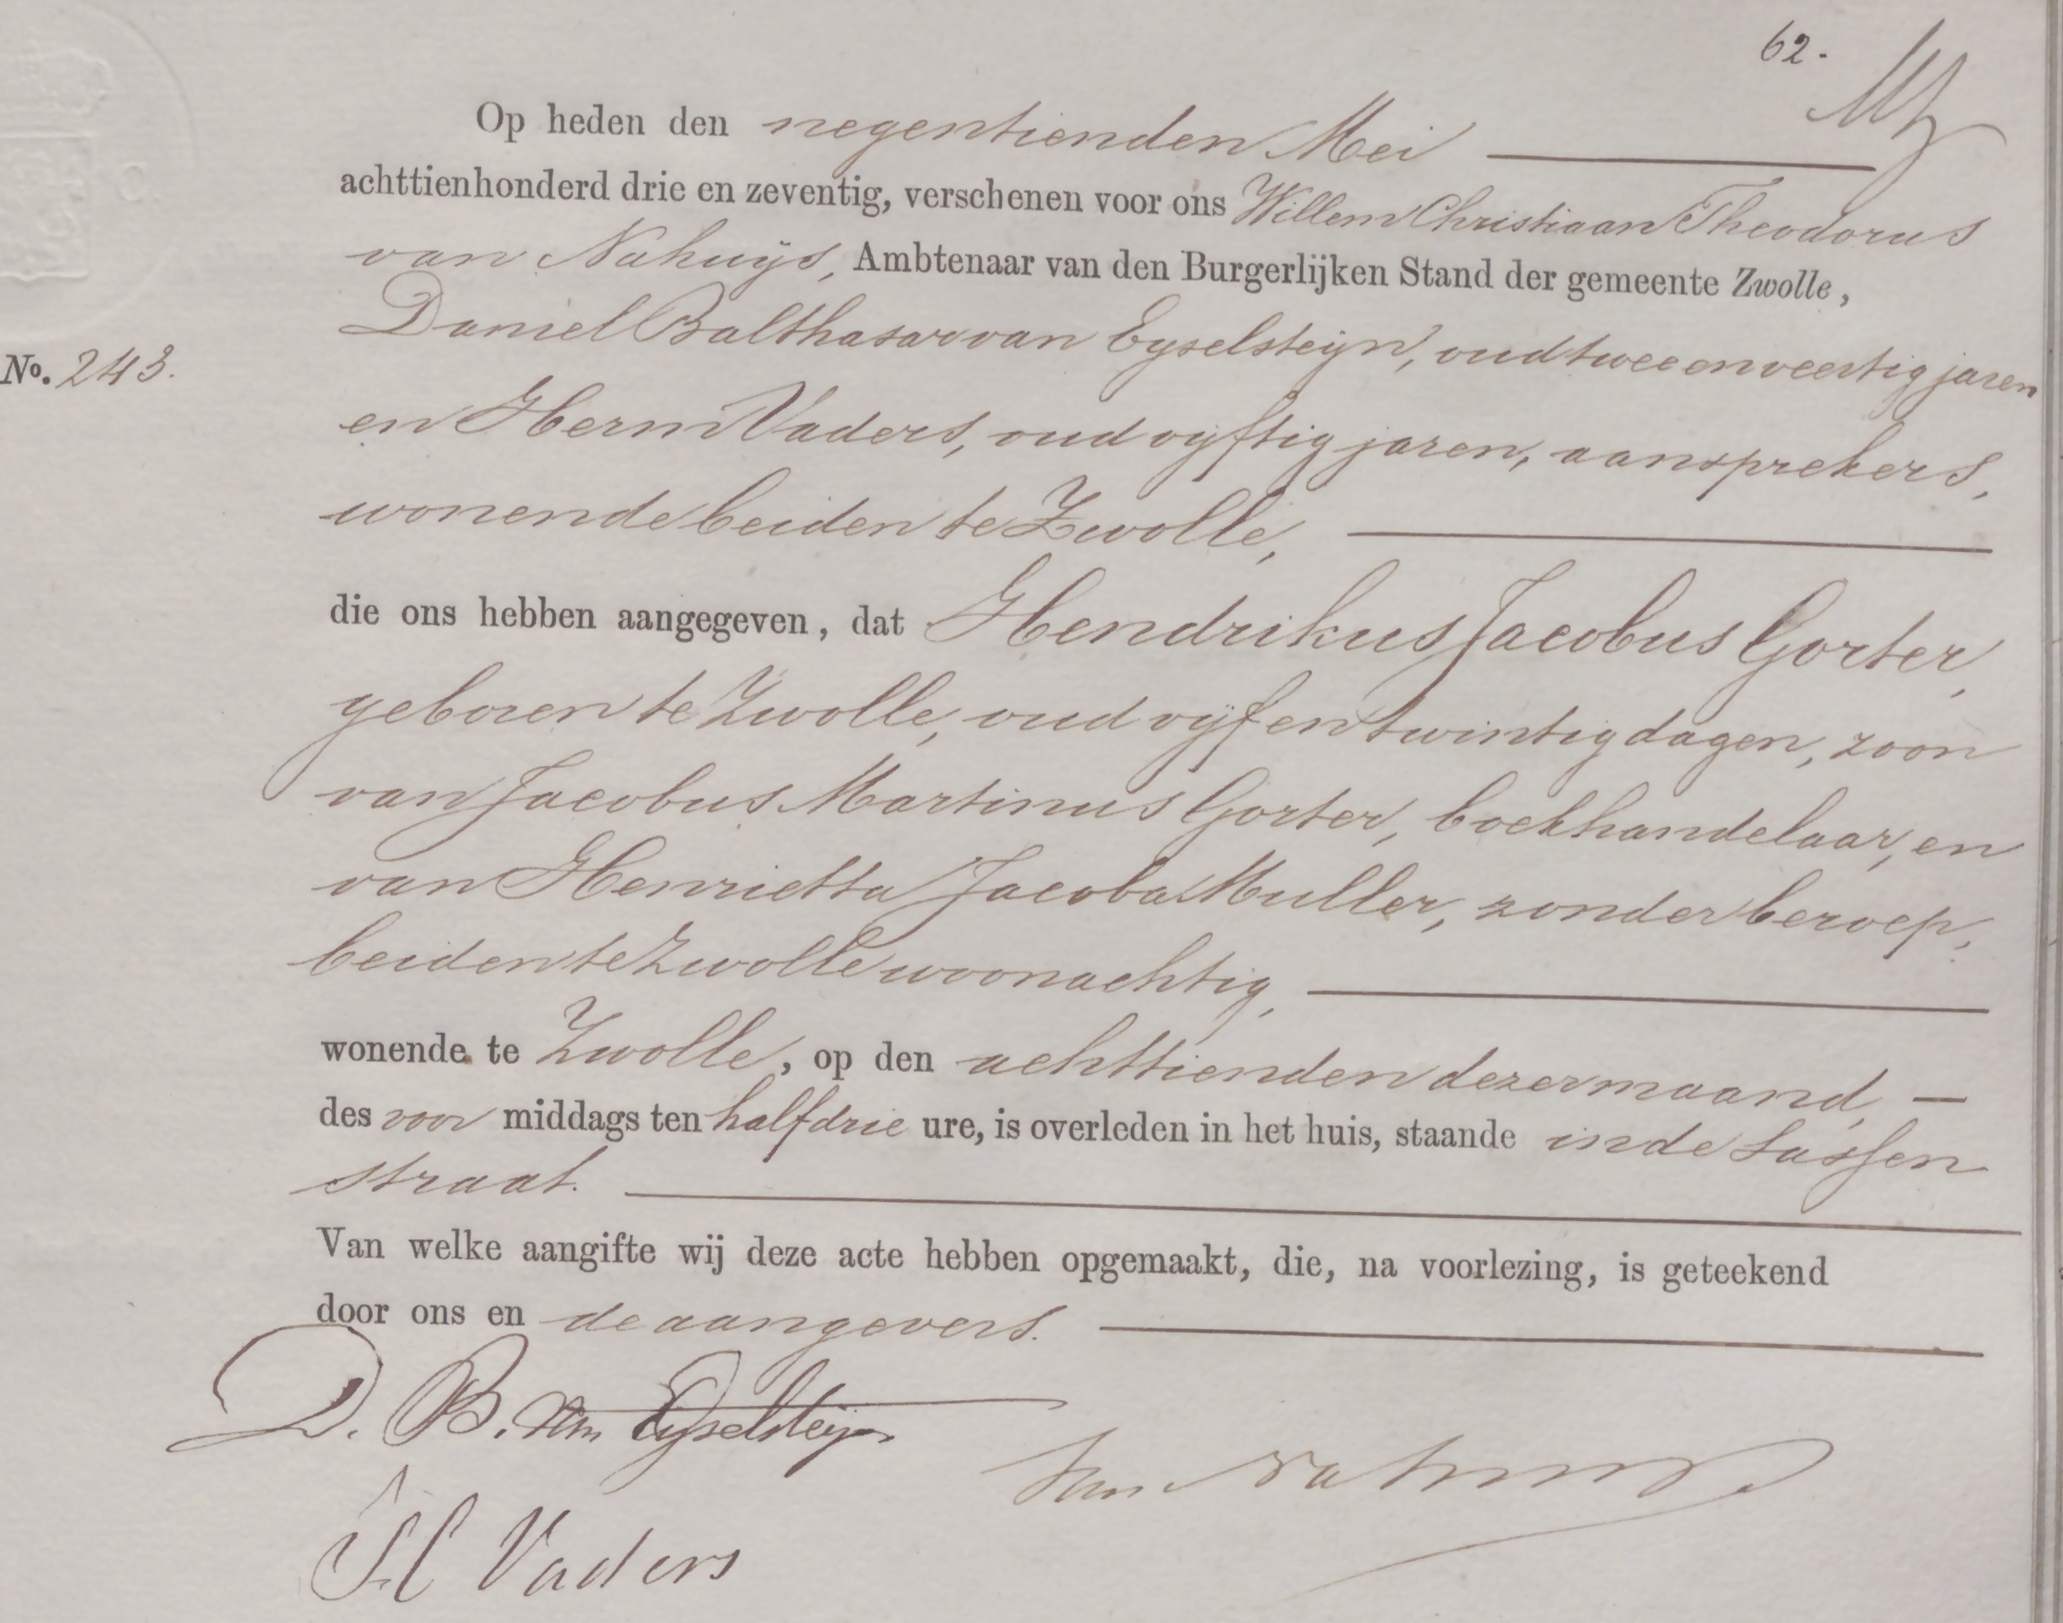 62.
Op heden den negentienden Mei
achttienhonderd drie en zeventig, verschenen voor ons Willem Christiaan Theodorus
van Nahuijs, Ambtenaar van den Burgerlijken Stand der gemeente Zwolle,
Daniel Balthasar van Eyselsteijn, oud twee en veertig jaren
No. 243.
en Herm Vaders, oud vijftig jaren, aansprekers,
wonende beiden te Zwolle,
die ons hebben aangegeven, dat Hendrikus Jacobus Gorter,
geboren te Zwolle, oud vijf en twintig dagen, zoon
van Jacobus Martinus Gorter, boekhandelaar, en
van Henrietta Jacoba Muller, zonder beroep,
beiden te Zwolle woonachtig,
wonende te Zwolle, op den achttienden dezer maand,
des voor middags ten half drie ure, is overleden in het huis, staande in de Sassen
straat.
Van welke aangifte wij deze acte hebben opgemaakt, die, na voorlezing, is geteekend
door ons en de aangevers.
D. B. van Eyselsteijn
Van Nahuys
H Vaders